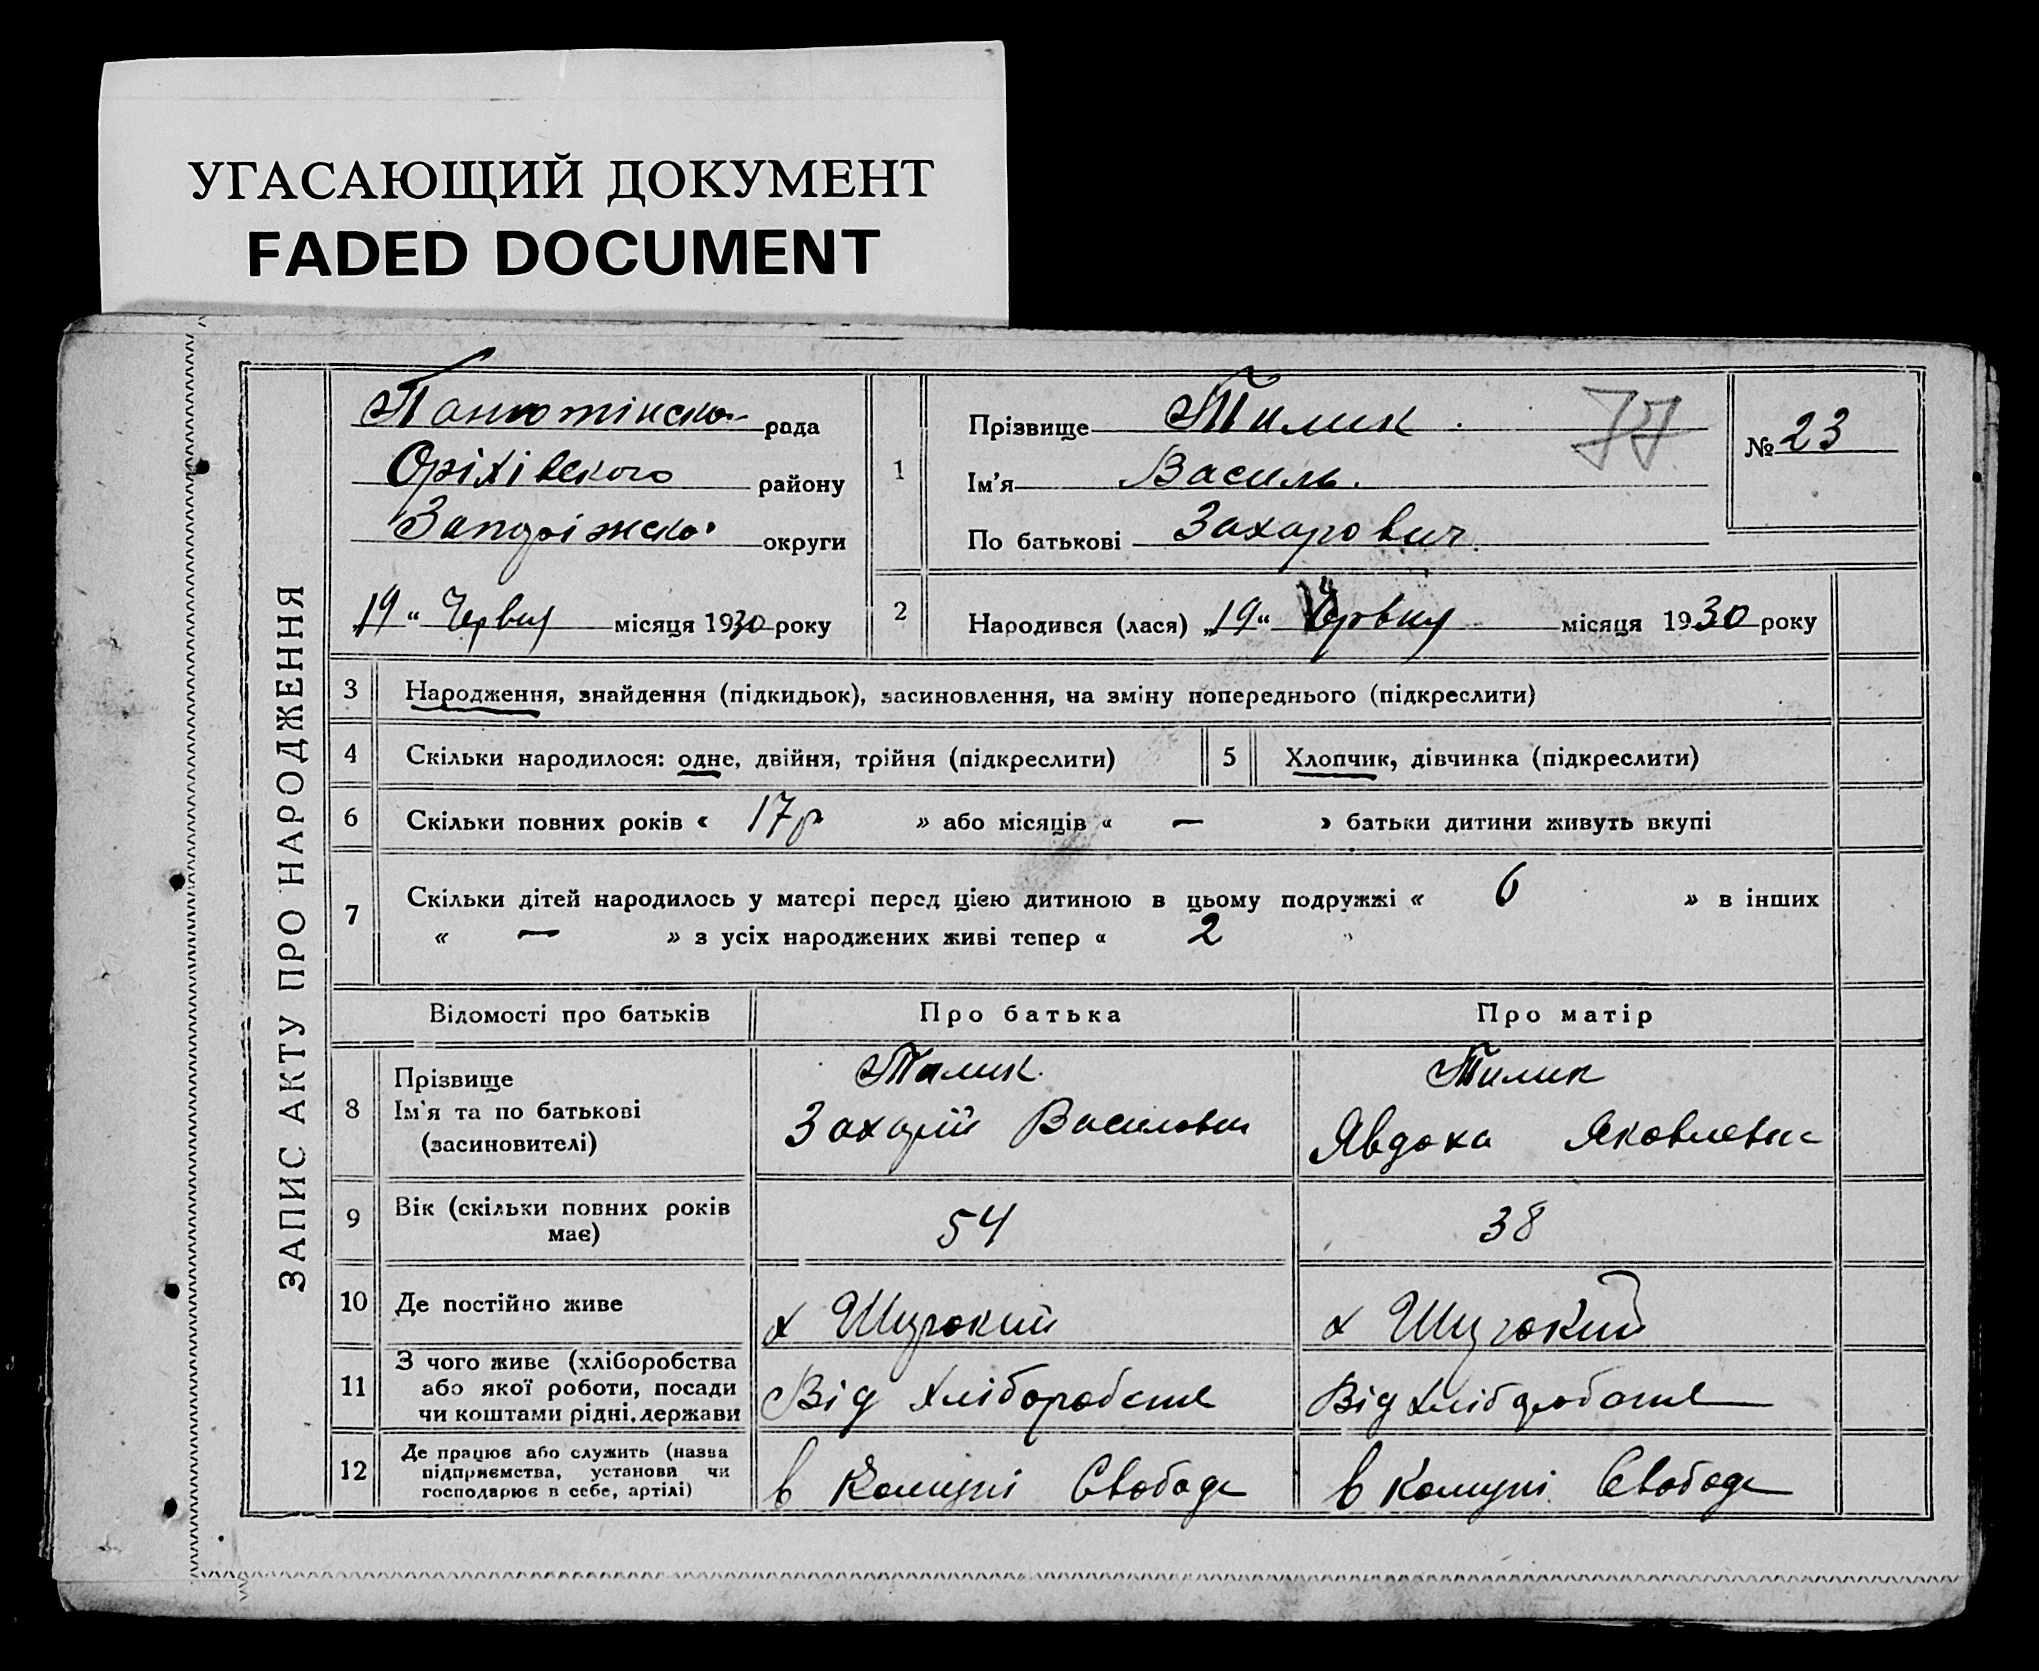 УГАСАЮЩИЙ ДОКУМЕНТ
FADED DOCUMENT
ЗАПИС АКТУ ПРО НАРОДЖЕННЯ
Панютінсько рада
Оріхівского району
Запоріжсько округи
19 “ Червня місяця 1930 року
1
Прізвище Тилик
Ім’я Василь.
По батькові Захарович.
№ 23
2 Народився (лася) „19“ Червня місяця 1930 року
3 Народження, знайдення (підкидьок), засиновлення, на зміну попереднього (підкреслити)
4 Скільки народилося: одне, двійня, трійня (підкреслити) 5 Хлопчик, дівчинка (підкреслити)
6 Скільки повних років « 17 р » або місяців « — » батьки дитини живуть вкупі
7 Скільки дітей народилось у матері перед цією дитиною в цьому подружжі « 6 » в інших
« — » з усіх народжених живі тепер « 2 »
Відомості про батьків Про батька Про матір
8 Прізвище Тилик Тилик
Ім’я та по батькові Захарій Василович Явдоха Яковлевна
(засиновителі)
9 Вік (скільки повних років 54 38
має)
10 Де постійно живе х Широкий х Широкий
11 З чого живе (хліборобства
або якої роботи, посади Від хліборобства Від хліборобства
чи коштами рідні, держави
12 Де працює або служить (назва
підприємства, установи чи в Комуні Свобода в Комуні Свобода
господарює в себе, артілі)